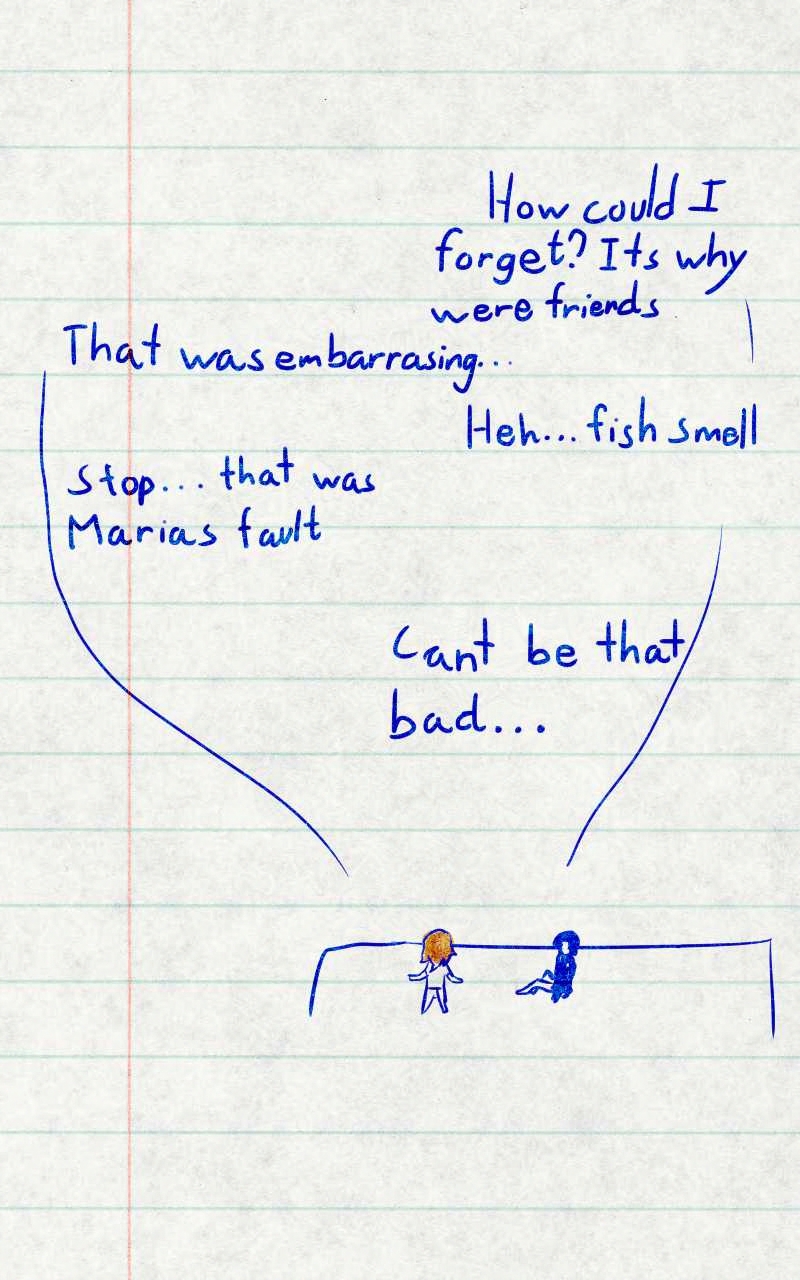 How could I
forget? Its why
were friends
That was embarrasing...
Heh... fish smell
Stop... that was
Marias fault
Cant be that
bad...